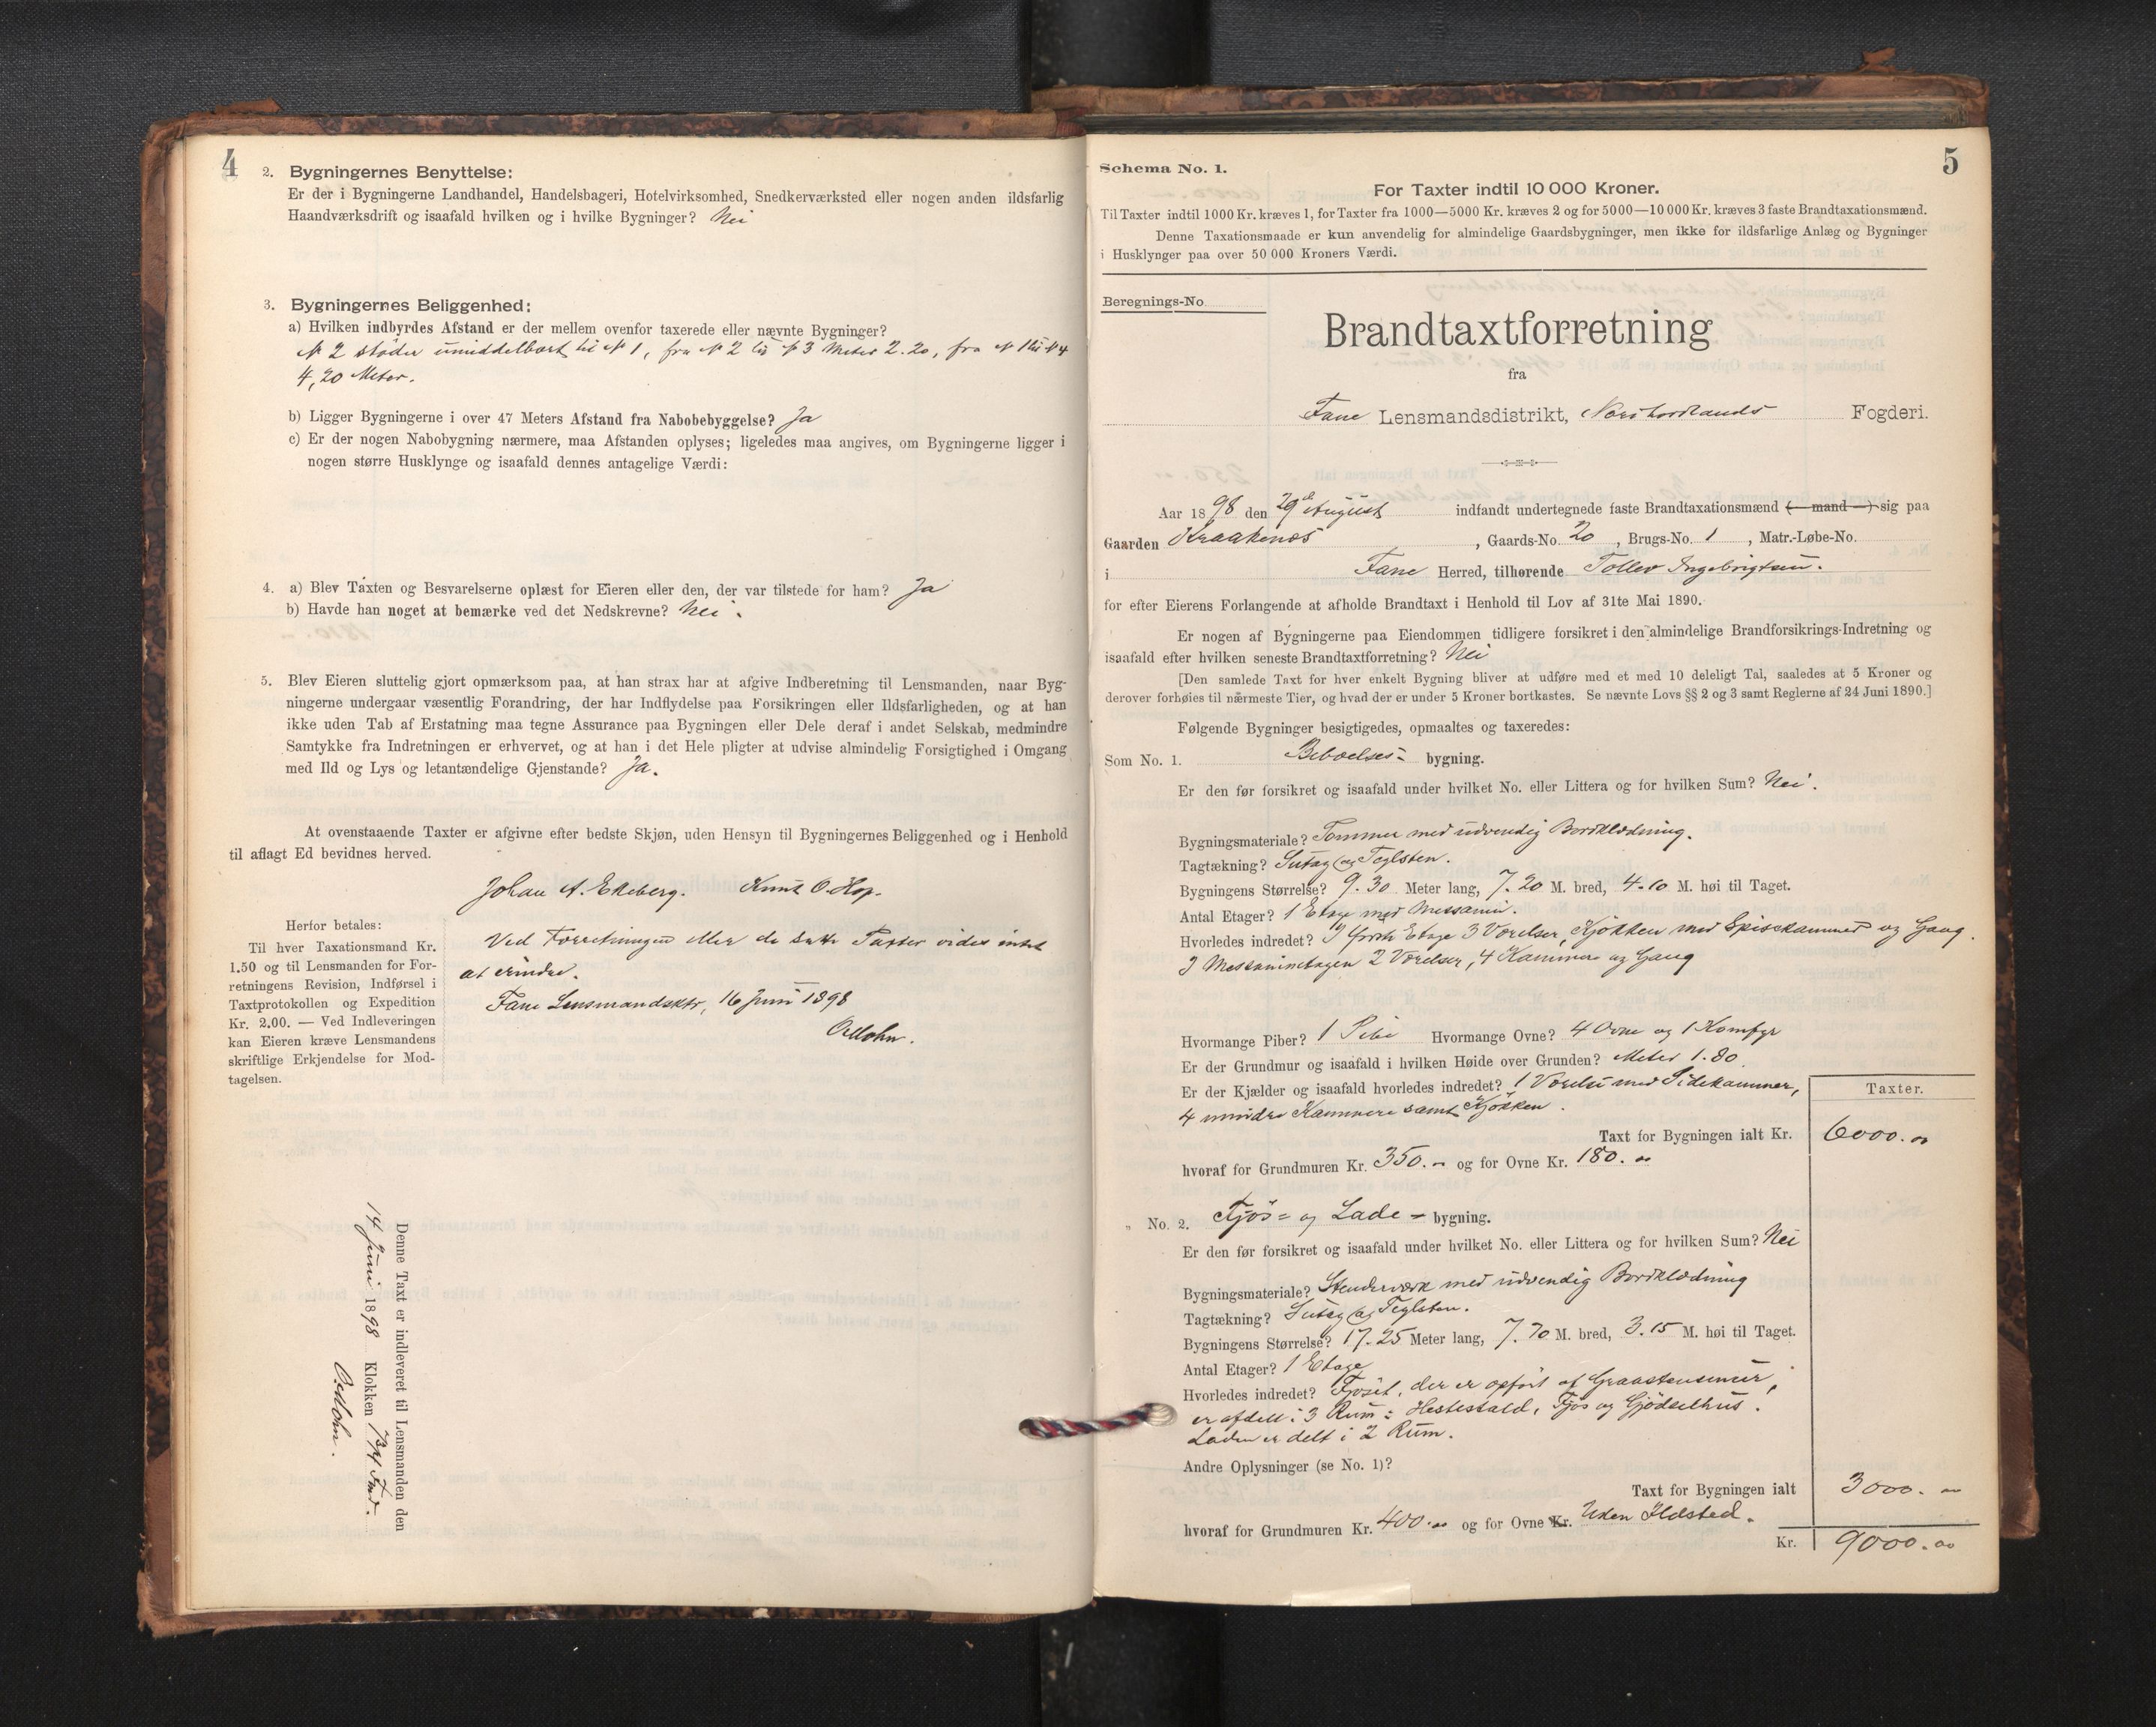 4
2. Bygningernes Benyttelse:
Er der i Bygningerne Landhandel, Handelsbageri, Hotelvirksomhed, Snedkerværksted eller nogen anden ildsfarlig
Haandværksdrift og isaafald hvilken og i hvilke Bygninger? Nei
3. Bygningernes Beliggenhed:
a) Hvilken indbyrdes Afstand er der mellem ovenfor taxerede eller nævnte Bygninger?
№ 2 støder umiddelbart til № 1, fra № 2 til № 3 Meter 2.20, fra № 1 til № 4
4,20 Meter.
b) Ligger Bygningerne i over 47 Meters Afstand fra Nabobebyggelse? Ja
c) Er der nogen Nabobygning nærmere, maa Afstanden oplyses; ligeledes maa angives, om Bygningerne ligger i
nogen større Husklynge og isaafald dennes antagelige Værdi:
4. a) Blev Taxten og Besvarelserne oplæst for Eieren eller den, der var tilstede for ham? Ja
b) Havde han noget at bemærke ved det Nedskrevne? Nei.
5. Blev Eieren sluttelig gjort opmærksom paa, at han strax har at afgive Indberetning til Lensmanden, naar Byg-
ningerne undergaar væsentlig Forandring, der har Indflydelse paa Forsikringen eller Ildsfarligheden, og at han
ikke uden Tab af Erstatning maa tegne Assurance paa Bygningen eller Dele deraf i andet Selskab, medmindre
Samtykke fra Indretningen er erhvervet, og at han i det Hele pligter at udvise almindelig Forsigtighed i Omgang
med Ild og Lys og letantændelige Gjenstande? Ja.
At ovenstaaende Taxter er afgivne efter bedste Skjøn, uden Hensyn til Bygningernes Beliggenhed og i Henhold
til aflagt Ed bevidnes herved.
Johan A. Ekeberg. Knut O. Hop.
Herfor betales:
Til hver Taxationsmand Kr.
1.50 og til Lensmanden for For-
retningens Revision, Indførsel i
Taxtprotokollen og Expedition
Kr. 2.00. — Ved Indleveringen
kan Eieren kræve Lensmandens
skriftlige Erkjendelse for Mod-
tagelsen.
Ved Forretningen eller de satte Taxter vides intet
at erindre.
Fane Lensmandsktr, 16 Juni 1898
Denne Taxt er indleveret til Lensmanden den
14 Juni 1898 Klokken 7 3/4 Fmd.
5
Schema No. 1.
For Taxter indtil 10 000 Kroner.
Til Taxter indtil 1000 Kr. kræves 1, for Taxter fra 1000—5000 Kr. kræves 2 og for 5000—10 000 Kr. kræves 3 faste Brandtaxationsmænd.
Denne Taxationsmaade er kun anvendelig for almindelige Gaardsbygninger, men ikke for ildsfarlige Anlæg og Bygninger
i Husklynger paa over 50 000 Kroners Værdi.
Beregnings-No
Brandtaxtforretning
fra
Fane Lensmandsdistrikt, Nordhordlands Fogderi.
Aar 1898 den 29de August indfandt undertegnede faste Brandtaxationsmænd (— mand —) sig paa
Gaarden Kraakenes, Gaards-No. 20, Brugs-No. 1, Matr.-Løbe-No.
i Fane Herred, tilhørende Tollev Ingebrigtsen.
for efter Eierens Forlangende at afholde Brandtaxt i Henhold til Lov af 31te Mai 1890.
Er nogen af Bygningerne paa Eiendommen tidligere forsikret i den almindelige Brandforsikrings-Indretning og
isaafald efter hvilken seneste Brandtaxtforretning? Nei
[Den samlede Taxt for hver enkelt Bygning bliver at udføre med et med 10 deleligt Tal, saaledes at 5 Kroner og
derover forhøies til nærmeste Tier, og hvad der er under 5 Kroner bortkastes. Se nævnte Lovs §§ 2 og 3 samt Reglerne af 24 Juni 1890.]
Følgende Bygninger besigtigedes, opmaaltes og taxeredes:
Som No. 1. Beboelses- bygning.
Er den før forsikret og isaafald under hvilket No. eller Littera og for hvilken Sum? Nei.
Bygningsmateriale? Tømmer med udvendig Bordklædning.
Tagtækning? Sutag og Teglsten.
Bygningens Størrelse? 9.30 Meter lang, 7.20 M. bred, 4.10 M. høi til Taget.
Antal Etager? 1 Etage med Messanin.
Hvorledes indredet? I første Etage 3 Værelser, Kjøkken med Spisekammer og Gang.
I Messaninetagen 2 Værelser, 4 Kammere og Gang
Hvormange Piber? 1 Pibe Hvormange Ovne? 4 Ovne og 1 Komfyr
Er der Grundmur og isaafald i hvilken Høide over Grunden? Meter 1.80
Er der Kjælder og isaafald hvorledes indredet? 1 Værelse med Sidekammer,
4 mindre Kammere samt Kjøkken.
Taxter.
Taxt for Bygningen ialt Kr. 6000.00
hvoraf for Grundmuren Kr. 350.00 og for Ovne Kr. 180.00
" No. 2. Fjøs- og Lade- bygning.
Er den før forsikret og isaafald under hvilket No. eller Littera og for hvilken Sum? Nei
Bygningsmateriale? Stenderværk med udvendig Bordklædning
Tagtækning? Sutag og Teglsten.
Bygningens Størrelse? 17.25 Meter lang, 7.70 M. bred, 3.15 M. høi til Taget.
Antal Etager? 1 Etage
Hvorledes indredet? Fjøset, der er opført af Graastensmur,
er afdelt i 3 Rum: Hestestald, Fjøs og Gjødselhus.
Laden er delt i 2 Rum.
Andre Oplysninger (se No. 1)?
Taxt for Bygningen ialt 3000.00
hvoraf for Grundmuren Kr. 400.00 og for Ovne Kr. Uden Ildsted.
Kr. 9000.00